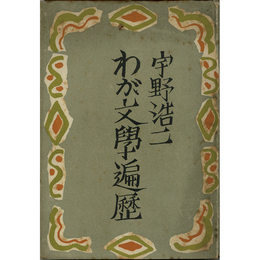 宇野浩二
わが文學遍歴